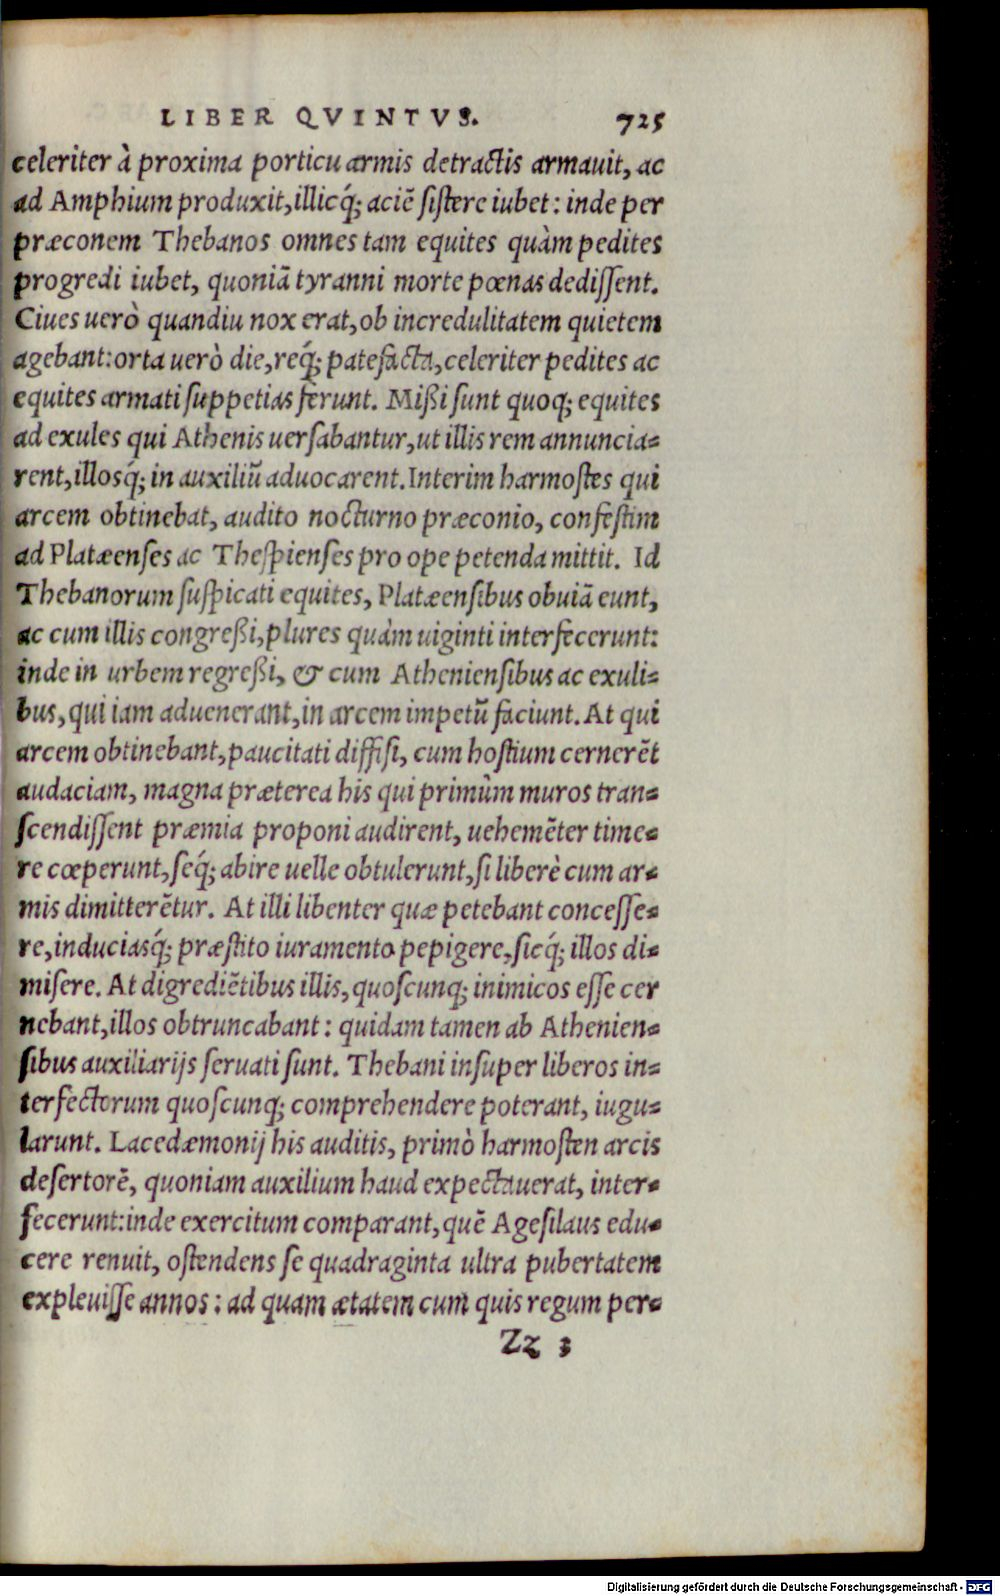 LIBER QVINTVS. 725
celeriter à proxima porticu armis detractis armauit, ac
ad Amphium produxit, illicq́; aciē ſiſtere iubet: inde per
præconem Thebanos omnes tam equites quàm pedites
progredi iubet, quoniā tyranni morte pœnas dediſſent.
Ciues uerò quandiu nox erat, ob incredulitatem quietem
agebant: orta uerò die, req́; patefacta, celeriter pedites ac
equites armati ſuppetias ferunt. Mißi ſunt quoq; equites
ad exules qui Athenis uerſabantur, ut illis rem annuncia-
rent, illosq́; in auxiliū aduocarent. Interim harmoſtes qui
arcem obtinebat, audito nocturno præconio, confeſtim
ad Platæenſes ac Theſpienſes pro ope petenda mittit. Id
Thebanorum ſuſpicati equites, Platæenſibus obuiā eunt,
ac cum illis congreßi, plures quàm uiginti interfecerunt:
inde in urbem regreßi, & cum Athenienſibus ac exuli-
bus, qui iam aduenerant, in arcem impetū faciunt. At qui
arcem obtinebant, paucitati diffiſi, cum hoſtium cernerēt
audaciam, magna præterea his qui primùm muros tran-
ſcendiſſent præmia proponi audirent, uehemēter time-
re cœperunt, ſeq́; abire uelle obtulerunt, ſi liberè cum ar-
mis dimitterētur. At illi libenter quæ petebant conceſſe-
re, induciasq́; præſtito iuramento pepigere, ſicq́; illos di-
miſere. At digrediētibus illis, quoſcunq; inimicos eſſe cer
nebant, illos obtruncabant: quidam tamen ab Athenien-
ſibus auxiliarijs ſeruati ſunt. Thebani inſuper liberos in-
terfectorum quoſcunq; comprehendere poterant, iugu-
larunt. Lacedæmonij his auditis, primò harmoſten arcis
deſertorē, quoniam auxilium haud expectauerat, inter-
fecerunt: inde exercitum comparant, quē Ageſilaus edu-
cere renuit, oſtendens ſe quadraginta ultra pubertatem
expleuiſſe annos: ad quam ætatem cum quis regum per-
Zz 3
Digitalisierung gefördert durch die Deutsche Forschungsgemeinschaft - DFG